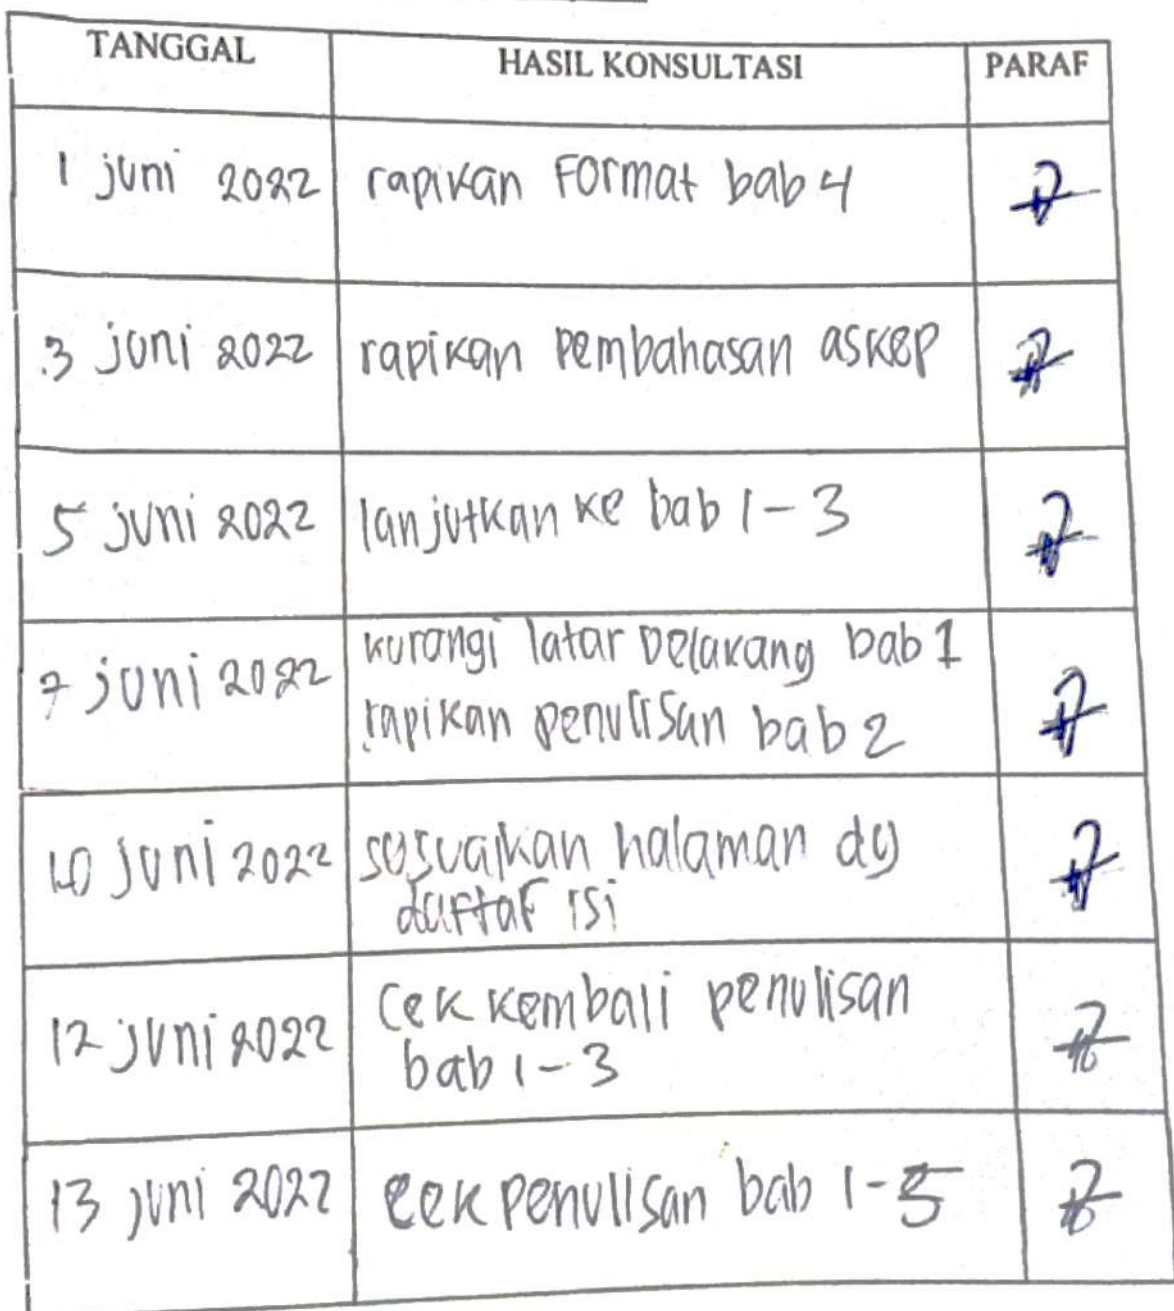 TANGGAL HASIL KONSULTASI PARAF
1 juni 2022 rapikan Format bab 4
3 juni 2022 rapikan pembahasan askep
5 juni 2022 lanjutkan ke bab 1-3
7 juni 2022 kurangi latar belakang bab 1
rapikan penulisan bab 2
10 juni 2022 sesuaikan halaman dg
daftar isi
12 juni 2022 Cek kembali penulisan
bab 1-3
13 juni 2022 cek penulisan bab 1-5